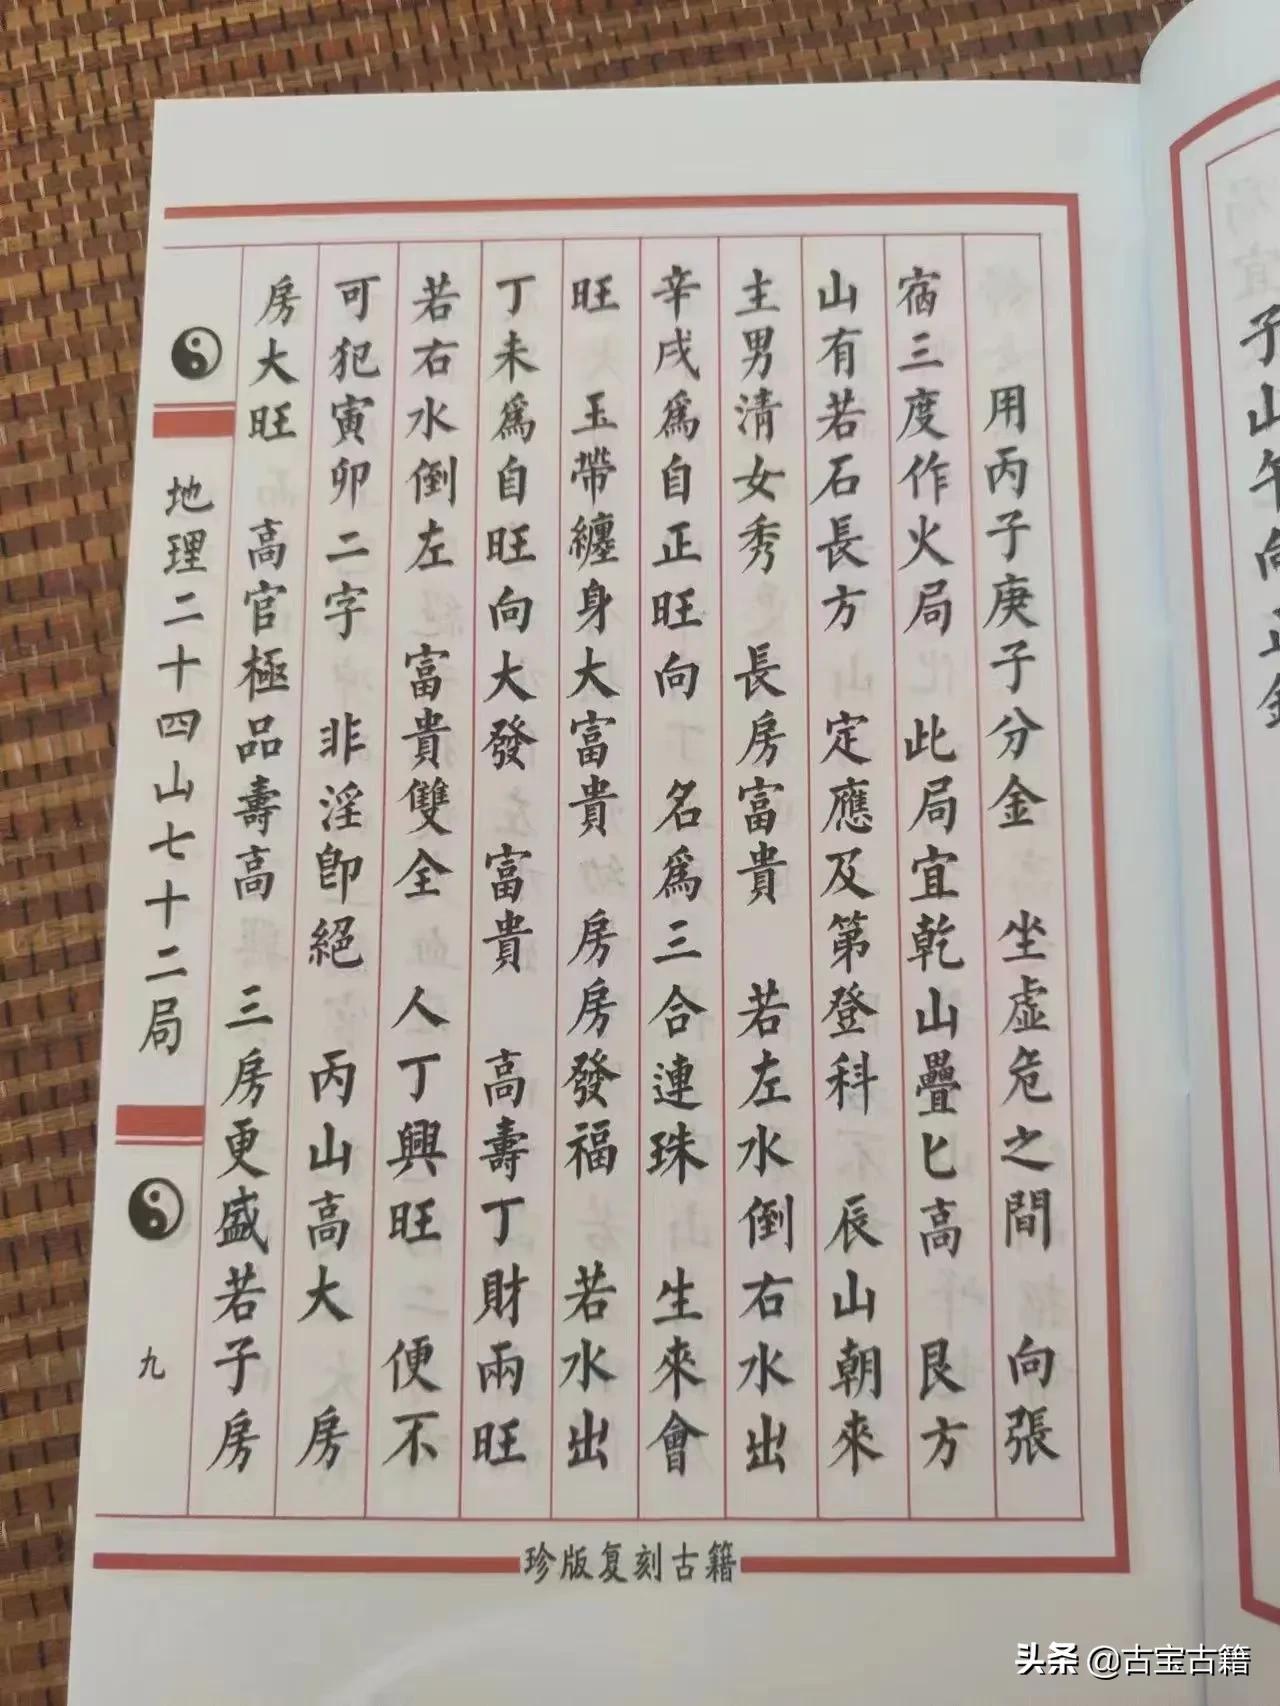 用丙子庚子分金　坐虛危之間　向張
宿三度作火局　此局宜乾山疊匕高　艮方
山有若石長方　定應及第登科　辰山朝來
主男清女秀　長房富貴　若左水倒右水出
辛戌爲自正旺向　名爲三合連珠　生來會
旺　玉帶纏身大富貴　房房發福　若水出
丁未爲自旺向大發　富貴　高壽丁財兩旺
若右水倒左　富貴雙全　人丁興旺　便不
可犯寅卯二字　非淫卽絕　丙山高大　房
房大旺　高官極品壽高　三房更盛若子房
地理二十四山七十二局
九
珍版复刻古籍
子山午向正金
头条 @古宝古籍